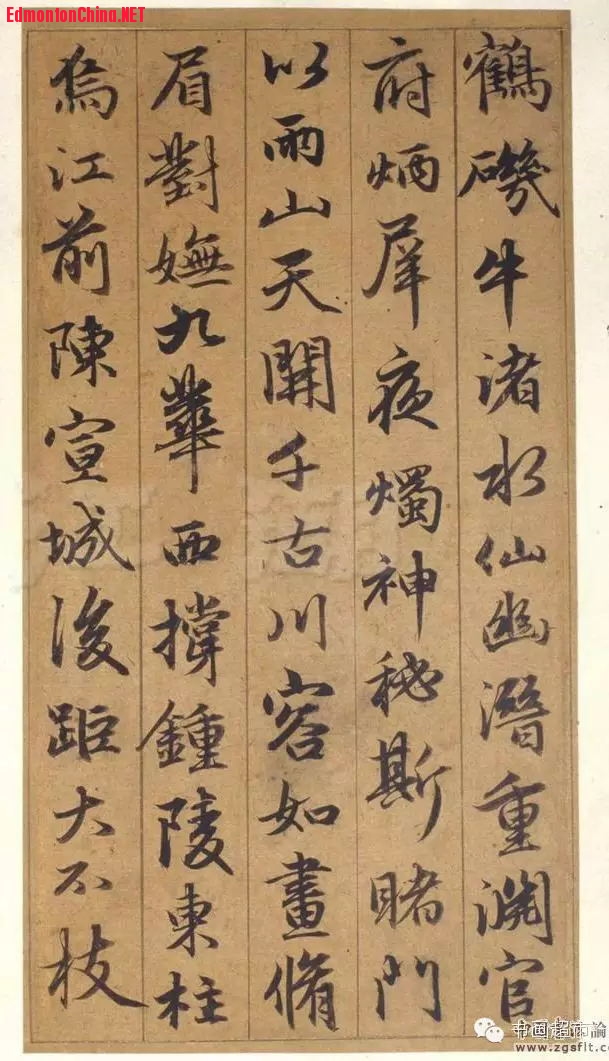 EdmontonChina.NET
鶴磯牛渚水仙幽潛重淵官
府炳犀夜燭神秘斯睹門
以兩山天開千古川容如畫脩
眉對嫵九華西撐鍾陵東柱
烏江前陳宣城後距大不枝
www.zgsflt.com